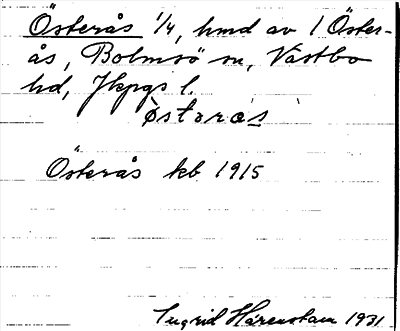 Österås 1/4, hmd av 1 Öster-
ås, Bolmsö sn, Västbo
hd, Jkpgs l.
östərås
Österås kb 1915
Ingrid Hårenstam 1931